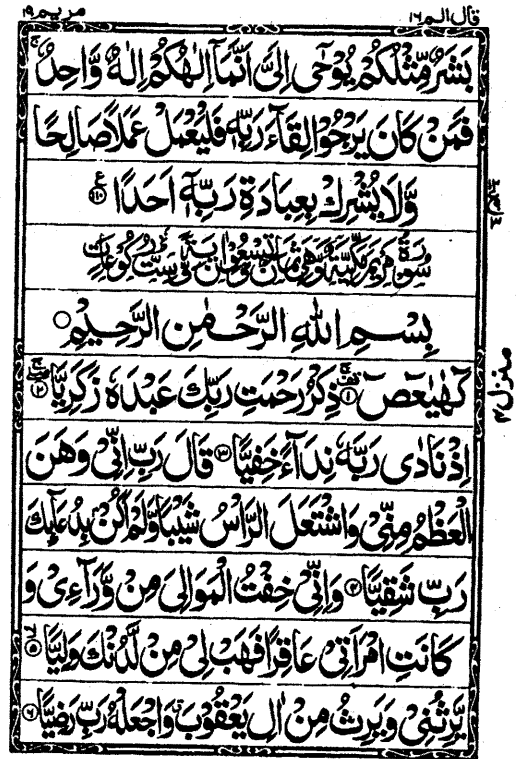 قال الم ١٦
مريم ١٩
بَشَرٌ مِّثْلُكُمْ يُوْحٰٓى اِلَىَّ اَنَّمَآ اِلٰهُكُمْ اِلٰهٌ وَّاحِدٌ ۚ
فَمَنْ كَانَ يَرْجُوْا لِقَآءَ رَبِّهٖ فَلْيَعْمَلْ عَمَلًا صَالِحًا
وَّلَا يُشْرِكْ بِعِبَادَةِ رَبِّهٖٓ اَحَدًا ۝١١٠ ع
سُوْرَةُ مَرْيَمَ مَكِّيَّةٌ وَّهِىَ ثَمَانٌ وَّتِسْعُوْنَ اٰيَةً وَّسِتُّ رُكُوْعَاتٍ
بِسْمِ اللهِ الرَّحْمٰنِ الرَّحِيْمِ ۝
كٓهٰيٰعٓصٓ ۝١ ذِكْرُ رَحْمَتِ رَبِّكَ عَبْدَهٗ زَكَرِيَّا ۝٢
اِذْ نَادٰى رَبَّهٗ نِدَآءً خَفِيًّا ۝٣ قَالَ رَبِّ اِنِّىْ وَهَنَ
الْعَظْمُ مِنِّىْ وَاشْتَعَلَ الرَّاْسُ شَيْبًا وَّلَمْ اَكُنْۢ بِدُعَآئِكَ
رَبِّ شَقِيًّا ۝٤ وَاِنِّىْ خِفْتُ الْمَوَالِىَ مِنْ وَّرَآءِىْ وَ
كَانَتِ امْرَاَتِىْ عَاقِرًا فَهَبْ لِىْ مِنْ لَّدُنْكَ وَلِيًّا ۝٥ لا
يَّرِثُنِىْ وَيَرِثُ مِنْ اٰلِ يَعْقُوْبَ وَاجْعَلْهُ رَبِّ رَضِيًّا ۝٦
منزل ٤